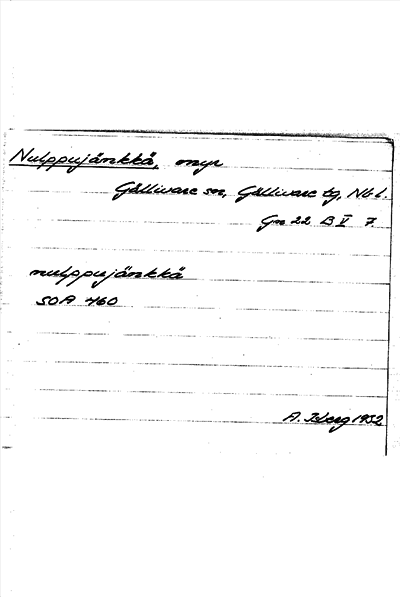 Nulppujänkkä, myr
Gällivare sn, Gällivare tg, Nbl.
Gn 22 B V 7
nulppujänkkä
SOA 460
A. Isberg 1932